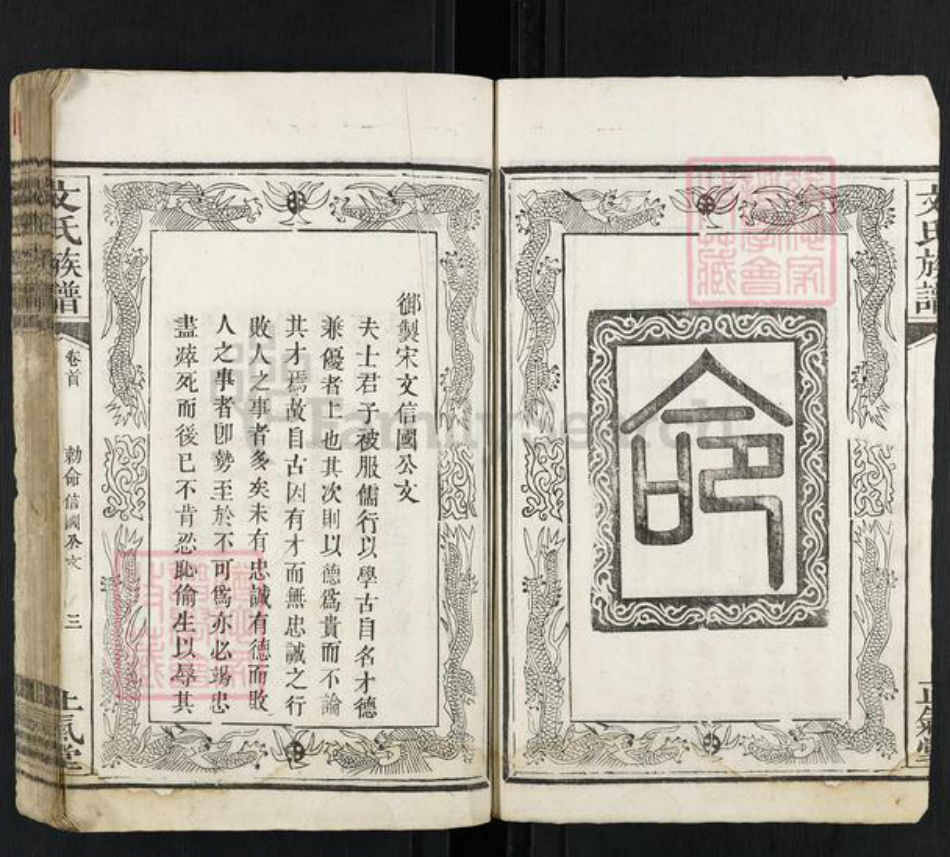 文氏族譜
正氣堂
命
御製宋文信國公文
夫士君子被服儒行以學古自名才德
兼優者上也其次則以德爲貴而不論
其才焉故自古因有才而無忠誠之行
敗人之事者多矣未有忠誠有德而敗
人之事者卽勢至於不可爲亦必竭忠
盡瘁死而後已不肯忍恥偷生以辱其
文氏族譜
卷首
勅命信國公文
三
正氣堂
FamilySearch